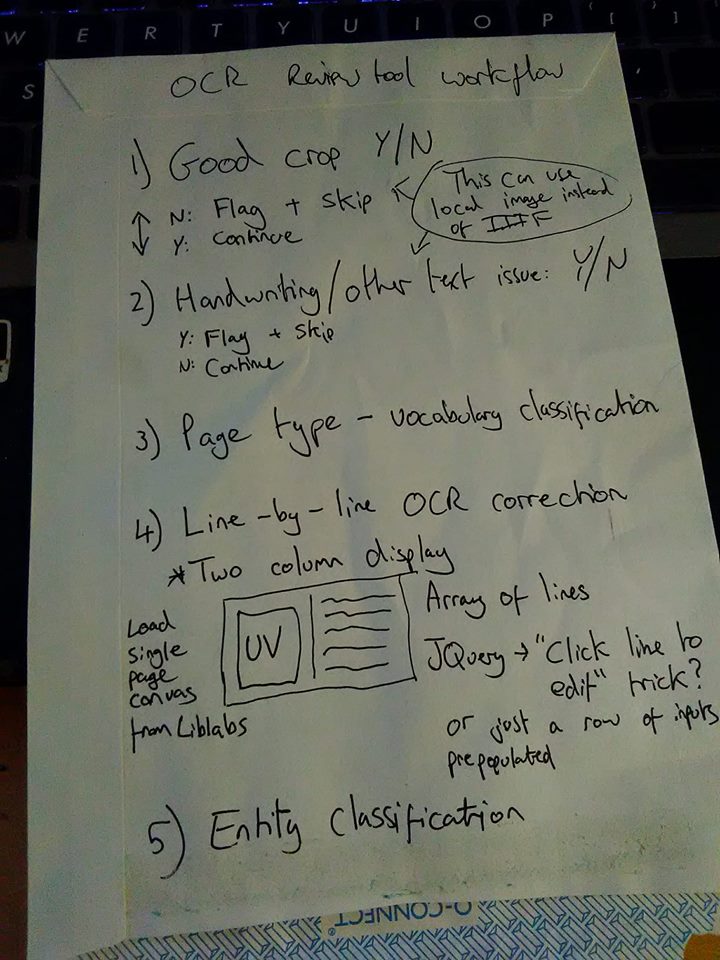 W E R T Y U I O P { [ } ]
S
OCR Review tool workflow
1) Good crop Y/N
N: Flag + skip
Y: Continue
This can use
local image instead
of IIIF
2) Handwriting/other text issue: Y/N
Y: Flag + skip
N: Continue
3) Page type - vocabulary classification
4) Line-by-line OCR correction
* Two column display
Load
single
page
canvas
from Liblabs
UV
Array of lines
JQuery → "Click line to
edit" trick?
or just a row of inputs
prepopulated
5) Entity classification
Q-CONNECT®